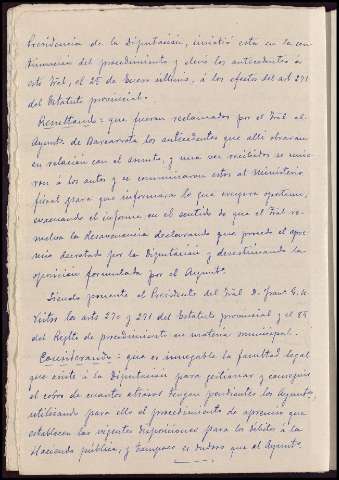 Presidencia de la Diputación, insistió esta en la con-
tinuación del procedimiento y elevó los antecedentes á
este Tral, el 25 de Enero último, á los efectos del art 271
del Estatuto provincial.
Resultando: que fueron reclamados por el Tral al
Ayuntº de Barcarrota los antecedentes que allí obraran
en relación con el asunto, y una vez recibidos se unie-
ron á los autos y se comunicaron estos al Ministerio
fiscal para que informara lo que creyera oportuno,
evacuando el informe en el sentido de que el Tral re-
suelva la desavenencia declarando que procede el apre-
mio decretado por la Diputación y desestimando la
oposición formulada por el Ayuntº.
Siendo ponente el Presidente del Tral D. Franº G. de
los arts 270 y 271 del Estatuto provincial y el 85
del Reglto de procedimiento en materia municipal.
Considerando: que es innegable la facultad legal
que asiste á la Diputación para gestionar y conseguir
el cobro de cuantos atrasos tengan pendientes los Ayuntºs,
utilizando para ello el procedimiento de apremio que
establecen las vigentes disposiciones para los débitos á la
Hacienda pública, y tampoco es dudoso que el Ayuntº